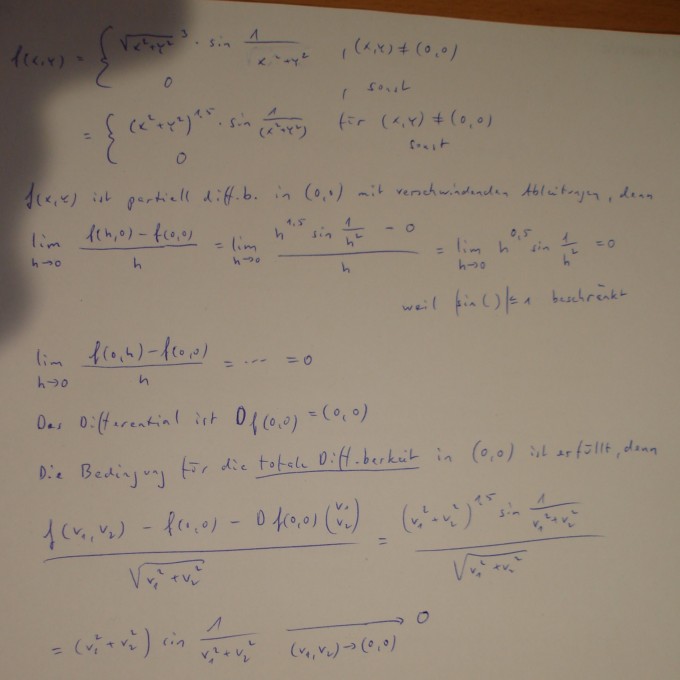 f(x,y) = { √(x²+y²)³ · sin 1/(x²+y²) , (x,y) ≠ (0,0)
0 , sonst
= { (x²+y²)^1,5 · sin 1/(x²+y²) für (x,y) ≠ (0,0)
0 sonst
f(x,y) ist partiell diff.b. in (0,0) mit verschwindenden Ableitungen, denn
lim h→0 (f(h,0) - f(0,0))/h = lim h→0 (h^1,5 sin 1/h² - 0)/h = lim h→0 h^0,5 sin 1/h² = 0
weil |sin()| ≤ 1 beschränkt
lim h→0 (f(0,h) - f(0,0))/h = ··· = 0
Das Differential ist Df(0,0) = (0,0)
Die Bedingung für die totale Diff.barkeit in (0,0) ist erfüllt, denn
(f(v₁,v₂) - f(0,0) - Df(0,0)(v₁ v₂))/√(v₁²+v₂²) = ((v₁²+v₂²)^1,5 sin 1/(v₁²+v₂²))/√(v₁²+v₂²)
= (v₁²+v₂²) sin 1/(v₁²+v₂²) → (v₁,v₂)→(0,0) 0